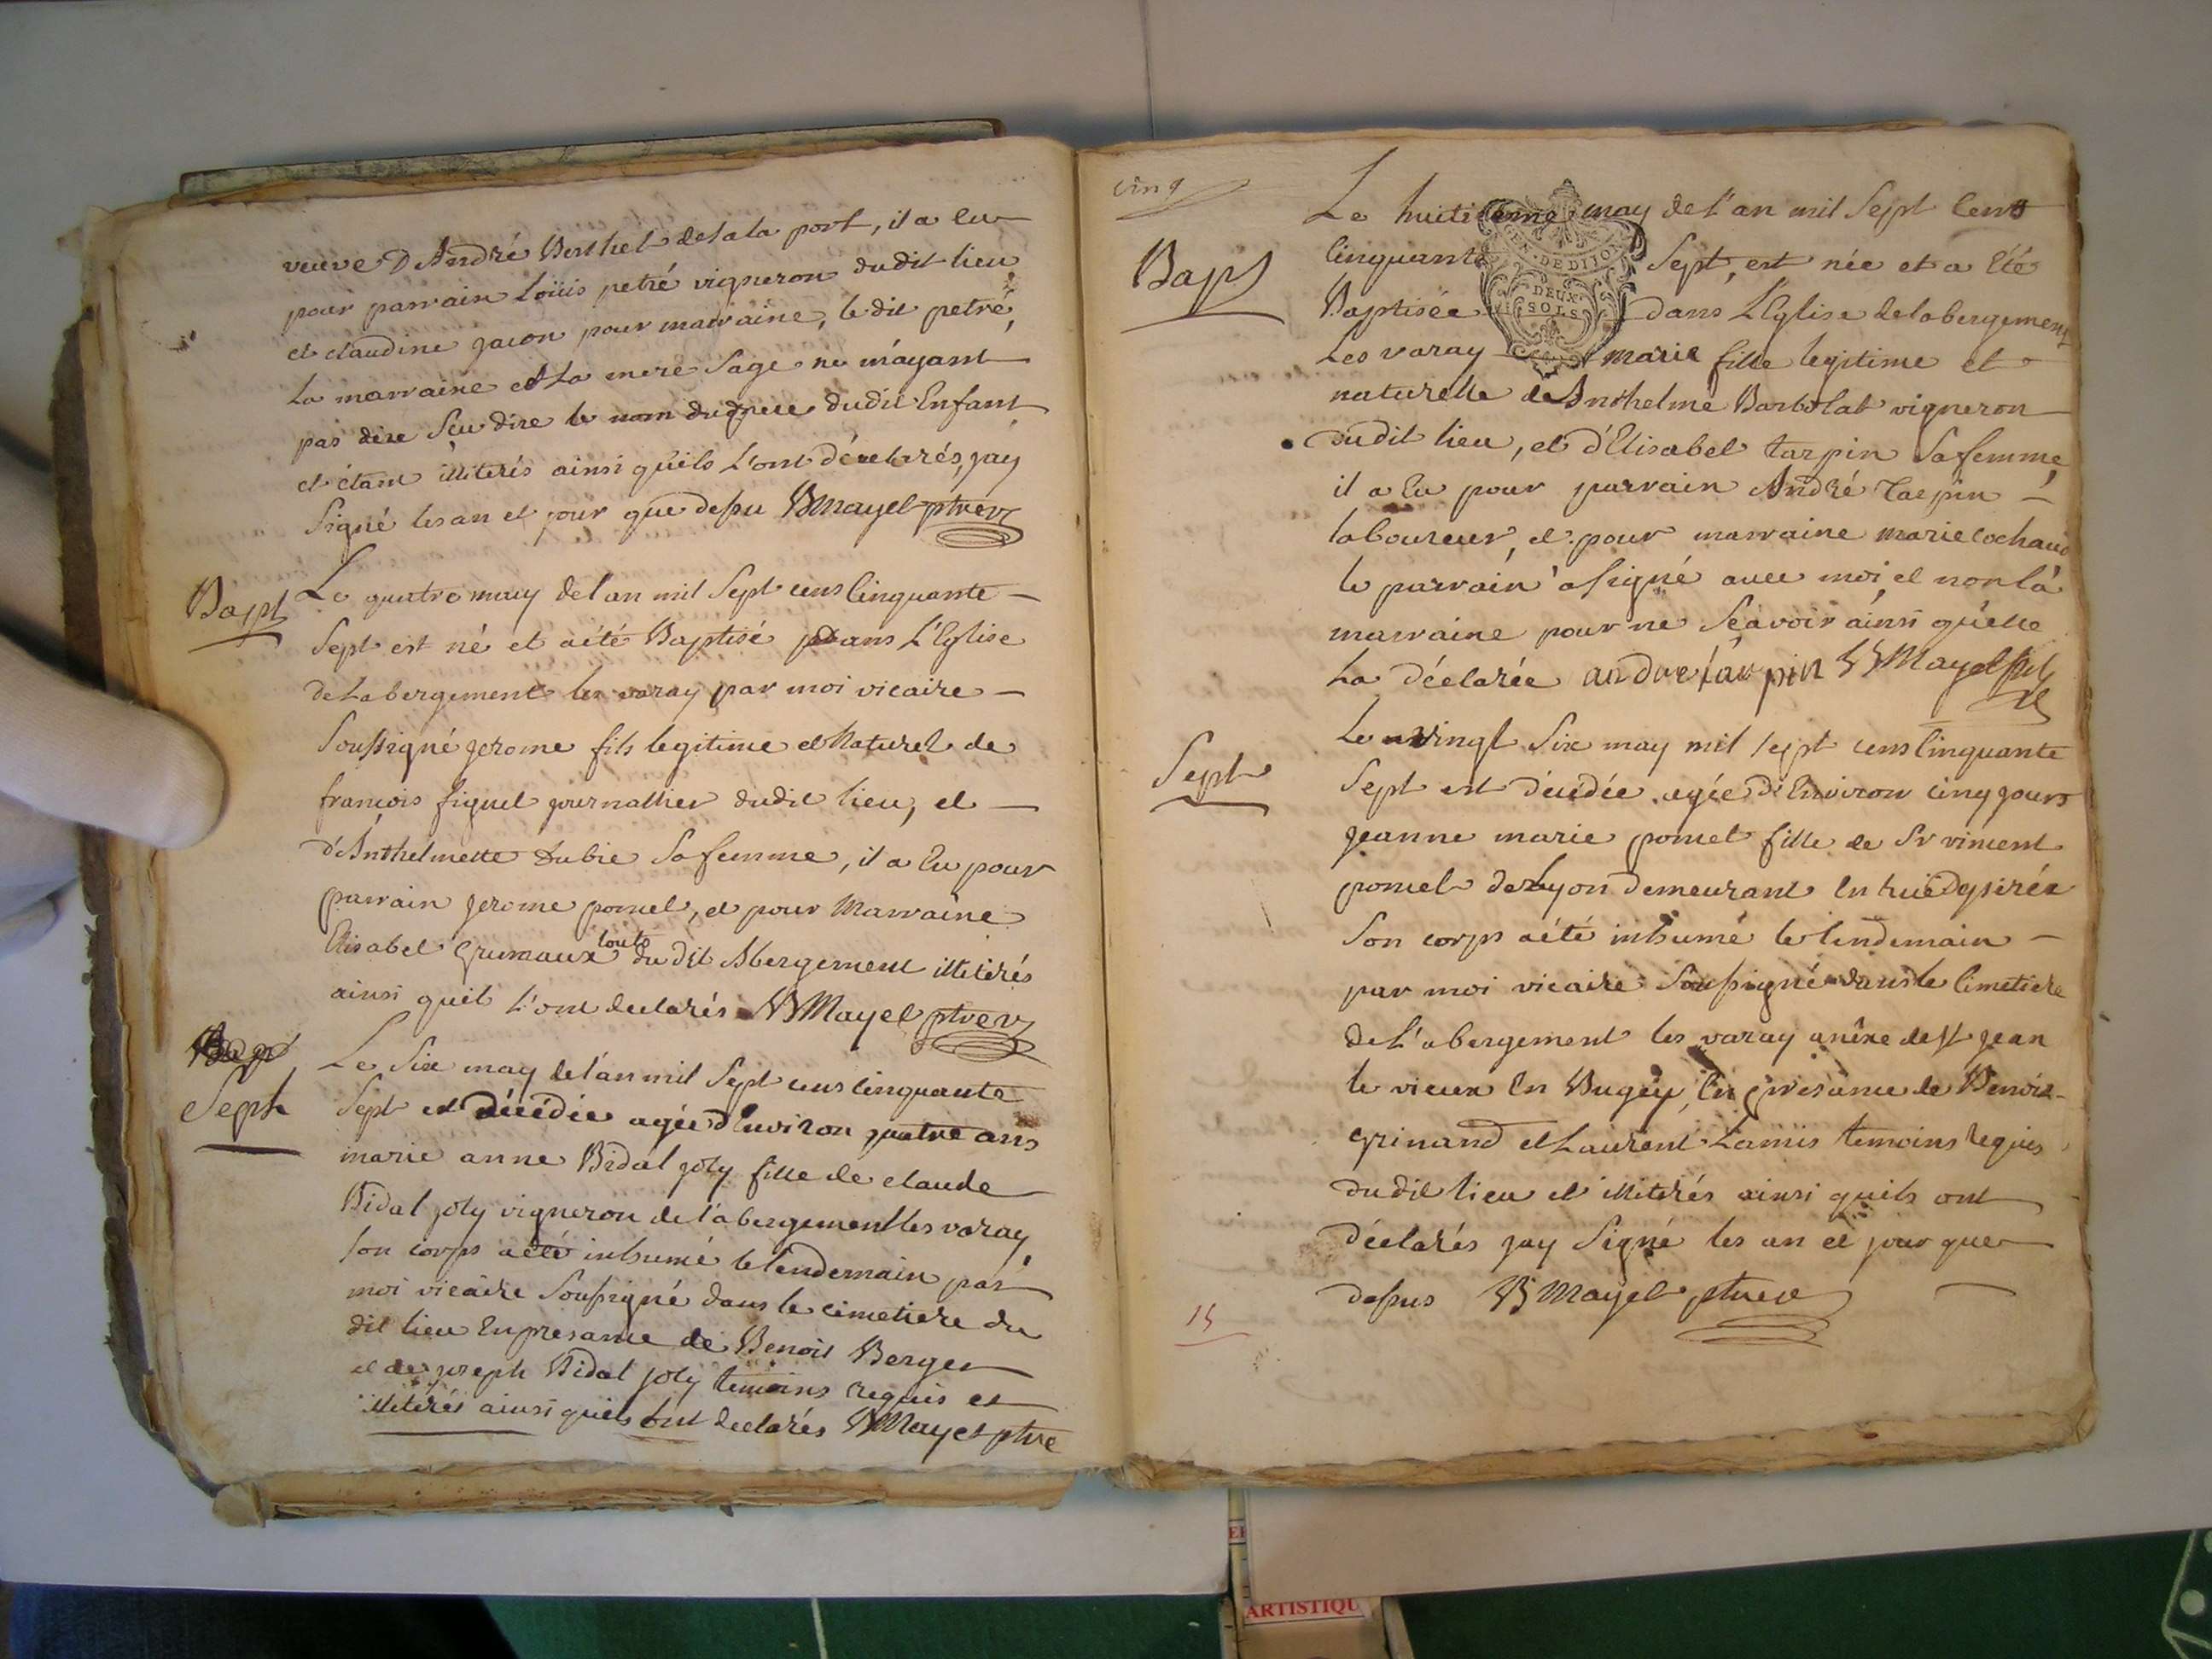 veuve D André Berthet delala port, il a eu
pour parrain Loüis petré vigneron dudit lieu
et claudine jacon pour marraine, le dit petré,
La marraine et La mere Sage ne m'ayant
pas dire Sçu dire le nom du pere dudit Enfant
et étant illiterés ainsi quils L'ont déclarés, jay
Signé les an et jour que dessu Mayet ptre v
Bapt
Le quatre may del an mil Sept cens Cinquante
Sept est né et aété Baptisé dans L'Eglise
deLabergement les varay par moi vicaire
Soussigné jerome fils legitime et Naturel de
françois figuet journallier dudit lieu, et
d'Anthelmette dubie Sa femme, il a Eu pour
parrain jerome pomel, et pour Marraine
Elisabet Grumaux touts du dit Abergement illiterés
ainsi quils L'ont declarés Mayet ptre v
Bapt
Sept
Le Six may del'an mil Sept cens cinquante
Sept est décédée agée d'Environ quatre ans
marie anne Bidal joly fille de claude
Bidal joly vigneron de l'abergement les varay,
Son corps aété inhumé lelendemain par
moi vicaire Soussigné dans le cimetiere du
dit lieu En presance de Benoit Berger
et de joseph Bidal joly temoins requis et
illiterés ainsi quils ont declarés Mayet ptre
cinq
Bapt
Le huitieme may de l'an mil Sept Cens
Cinquante Sept, est née et a Eté
Baptisée dans L'Eglise delabergement
Les varay marie fille legitime et
naturelle de Anthelme Barbolat vigneron
dudit lieu, et d'Elisabet tarpin Sa femme,
il a Eu pour parrain André tarpin
laboureur, et pour marraine marie cochaud
le parrain a signé avec moi, et non la
marraine pour ne Sçavoir ainsi qu'elle
La déclarée andre tarpin Mayet ptre
GEN. DE DIJON
DEUX
SOLS
Sept
Le vingt Six may mil sept cens Cinquante
Sept est décédée agée d'Environ cinq jours
jeanne marie pomet fille de Sr vincent
pomet de Lyon demeurant En ruë
Son corps aété inhumé le lendemain
par moi vicaire Soussigné dans le Cimetiere
de L'abergement les varay anéxe de St jean
le vieux En Bugey, En presance de Benoit
grinand et Laurent Lamis temoins requis
dudit lieu et illiterés ainsi quils ont
déclarés jay Signé les an et jour que
dessus Mayet ptre v
15
ARTISTIQU